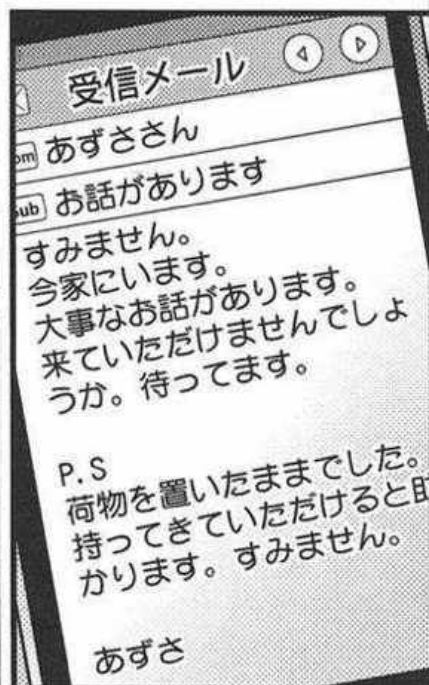 受信メール
om あずささん
Sub お話があります
すみません。
今家にいます。
大事なお話があります。
来ていただけませんでしょ
うか。待ってます。
P.S
荷物を置いたままでした。
持ってきていただけると助
かります。すみません。
あずさ